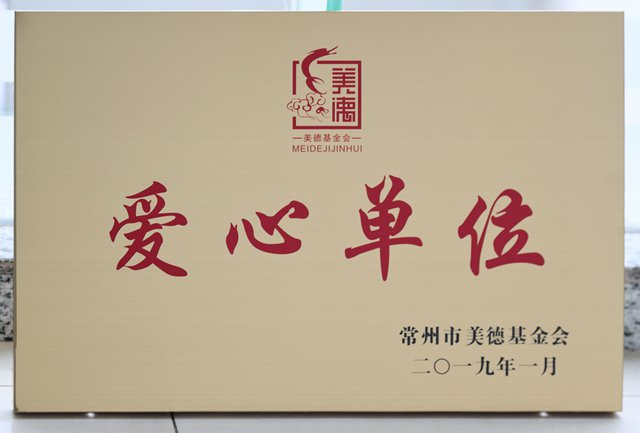 美德
美德基金会
MEIDEJIJINHUI
爱心单位
常州市美德基金会
二〇一九年一月